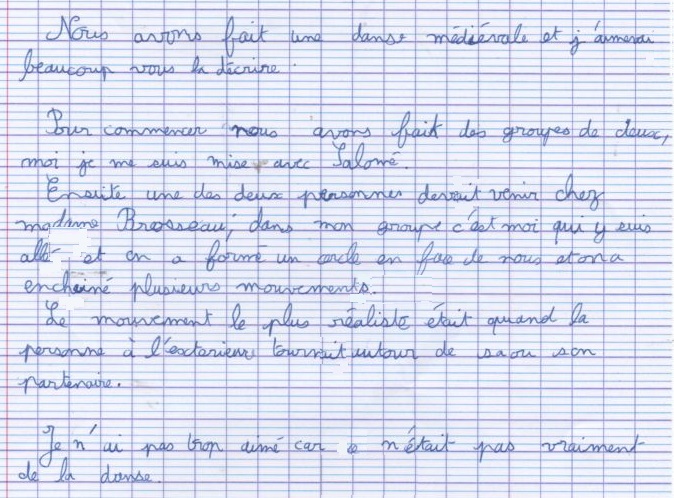 Nous avons fait une danse médiévale et j'aimerai
beaucoup vous la décrire.
Pour commencer nous avons fait des groupes de deux,
moi je me suis mise avec Salomé.
Ensuite une des deux personnes devait venir chez
madame Brosseau, dans mon groupe c'est moi qui y suis
allé et on a formé un cercle en face de nous et on a
enchainé plusieurs mouvements.
Le mouvement le plus réaliste était quand la
personne à l'extérieur tournait autour de sa ou son
partenaire.
Je n'ai pas trop aimé car n'était pas vraiment
de la danse.